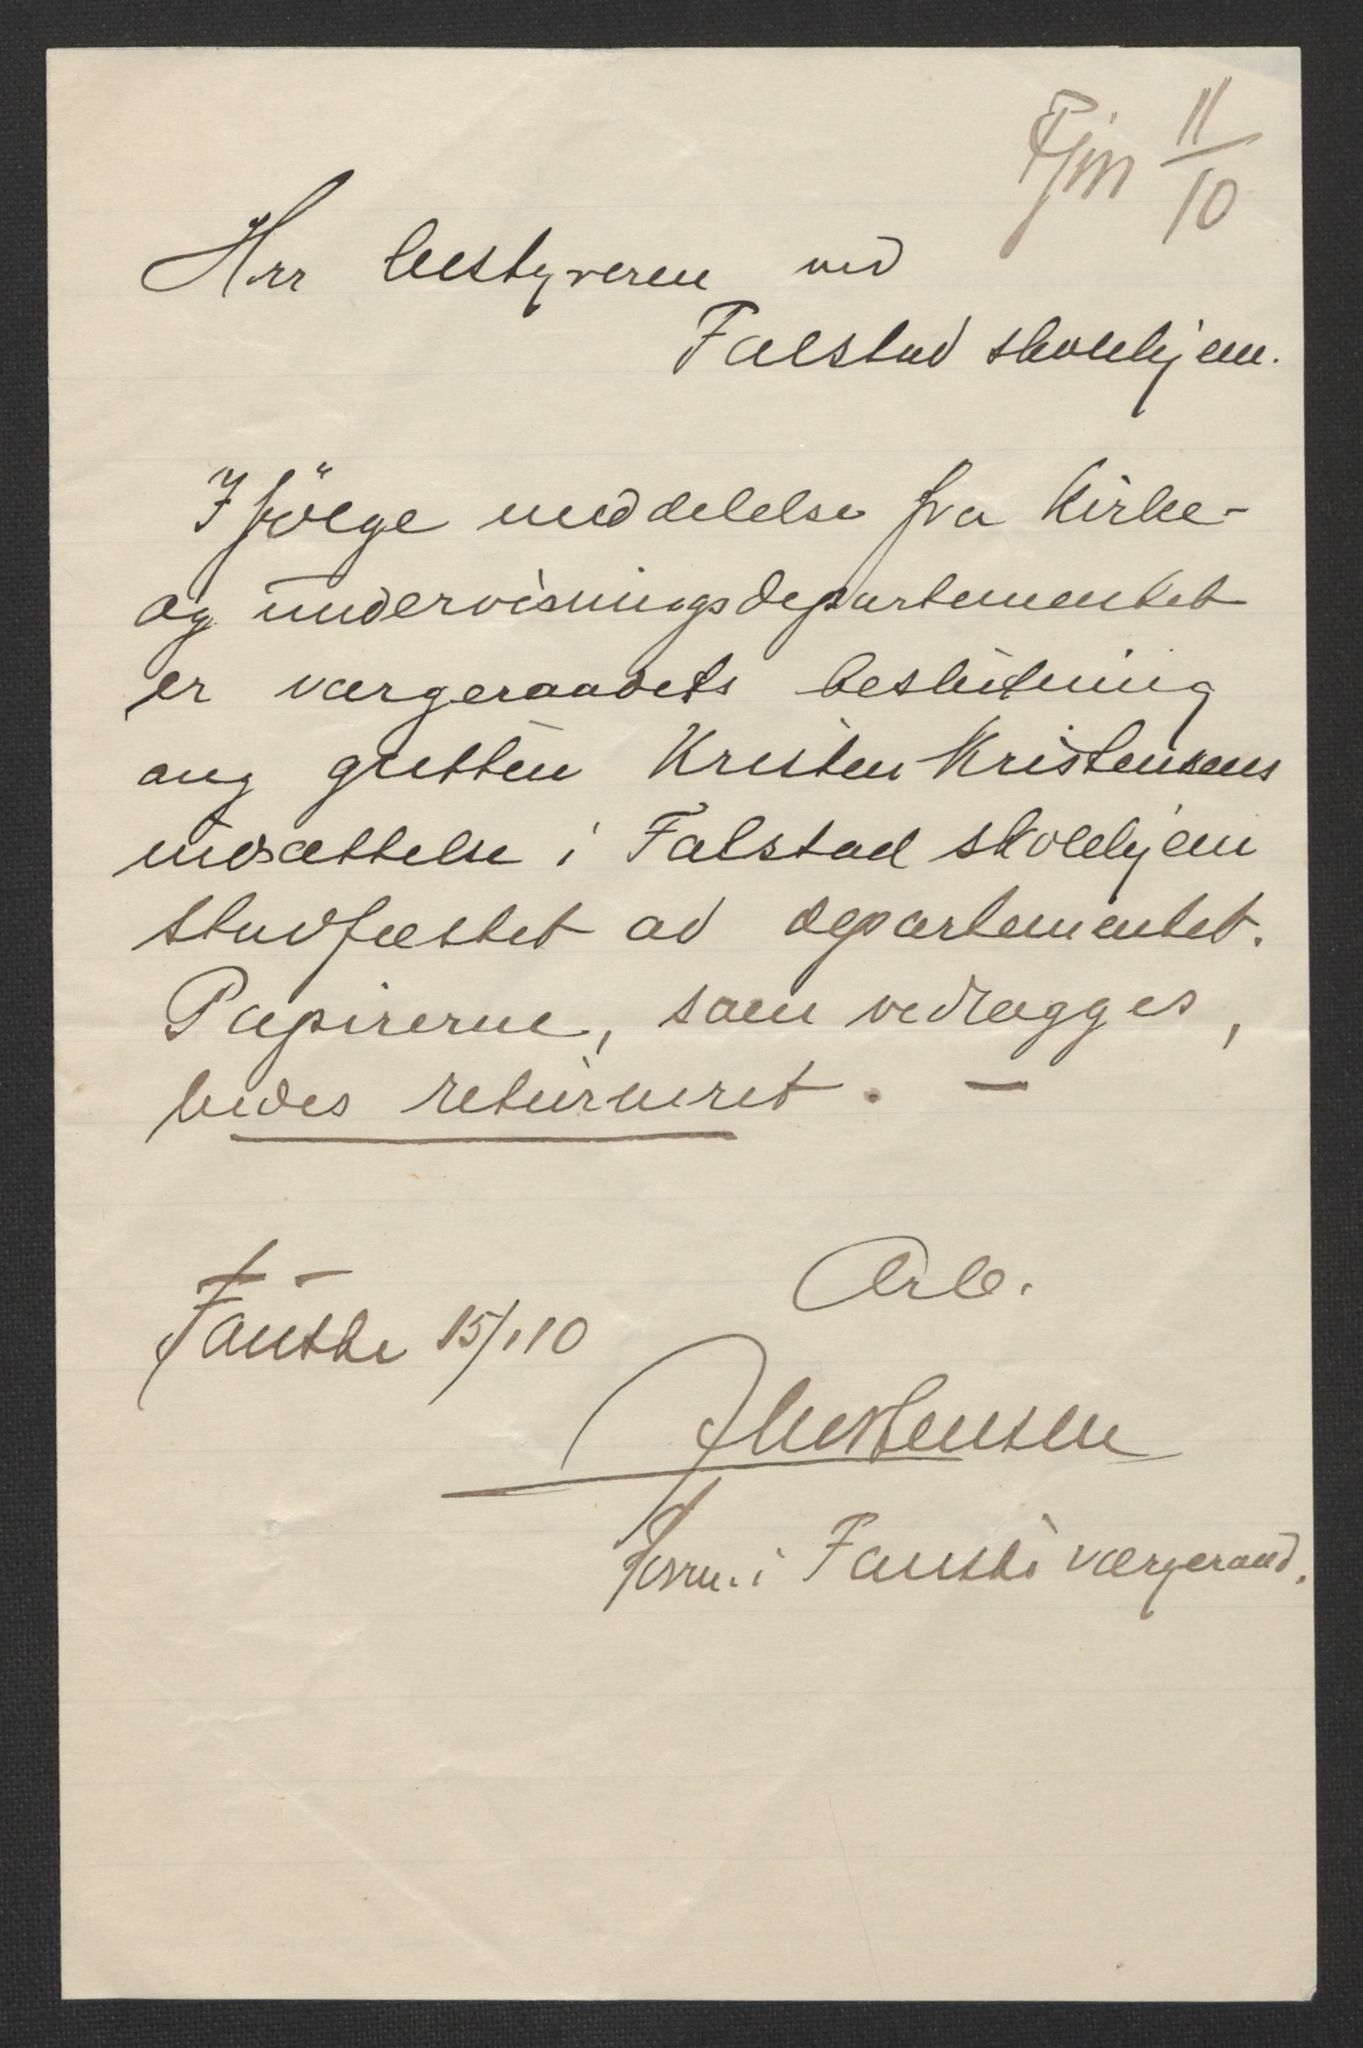 Fjm 11/10
Herr bestyreren ved
Falstad skolehjem.
Ifölge meddelelse fra Kirke-
og undervisningsdepartementet
er værgeraadets beslutning
ang gutten Kristen Kristensens
indsættelse i Falstad skolehjem
stadfæstet av departementet.
Papirerne, som vedlægges,
bedes returneret. —
Ærb.
Fauske 15/1 10
Mortensen
form. i Fauske værgeraad.